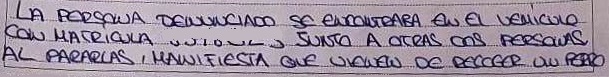 LA PERSONA DENUNCIADO SE ENCONTRABA EN EL VEHICULO
CON MATRICULA JUNTO A OTRAS DOS PERSONAS
AL PARARLAS, MANIFIESTA QUE VIENEN DE RECOGER UN PERRO